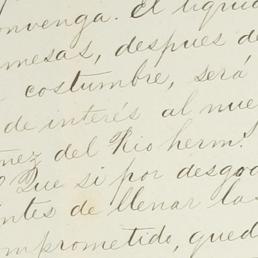 onvenga. El liquid
mesas, después de
costumbre, será
de interés al nue
nez del Rio herm.
Que si por desgra
ntes de llenar las
omprometido, qued